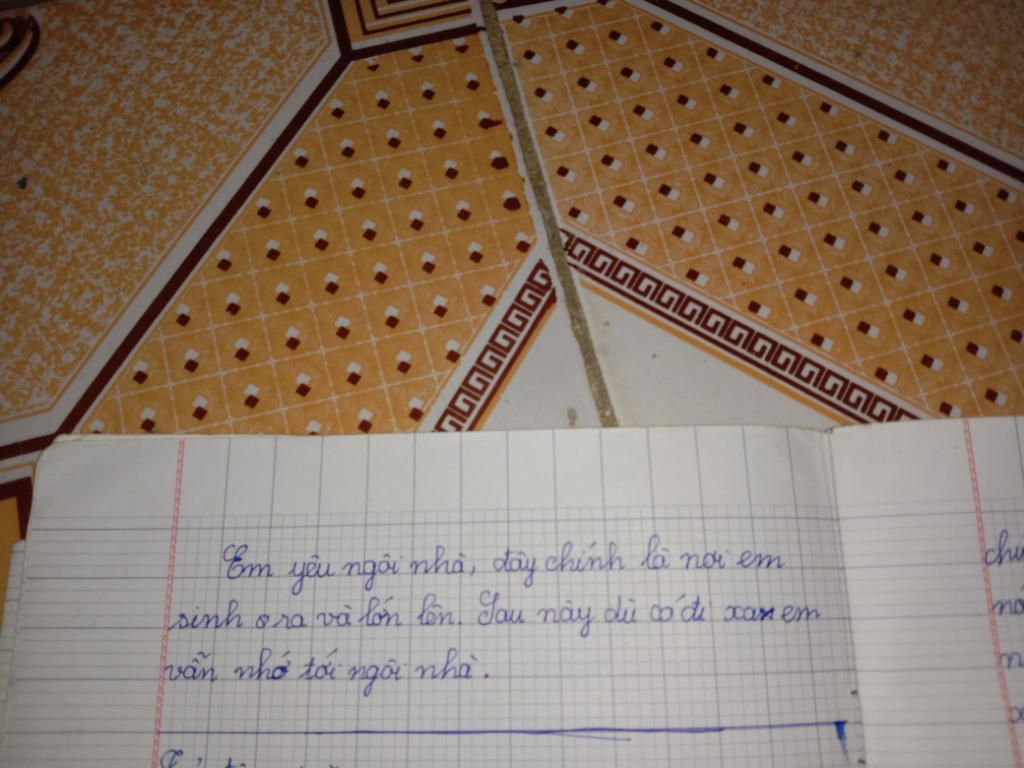 Em yêu ngôi nhà, đây chính là nơi em
sinh ra và lớn lên. Sau này dù có đi xa em
vẫn nhớ tới ngôi nhà.